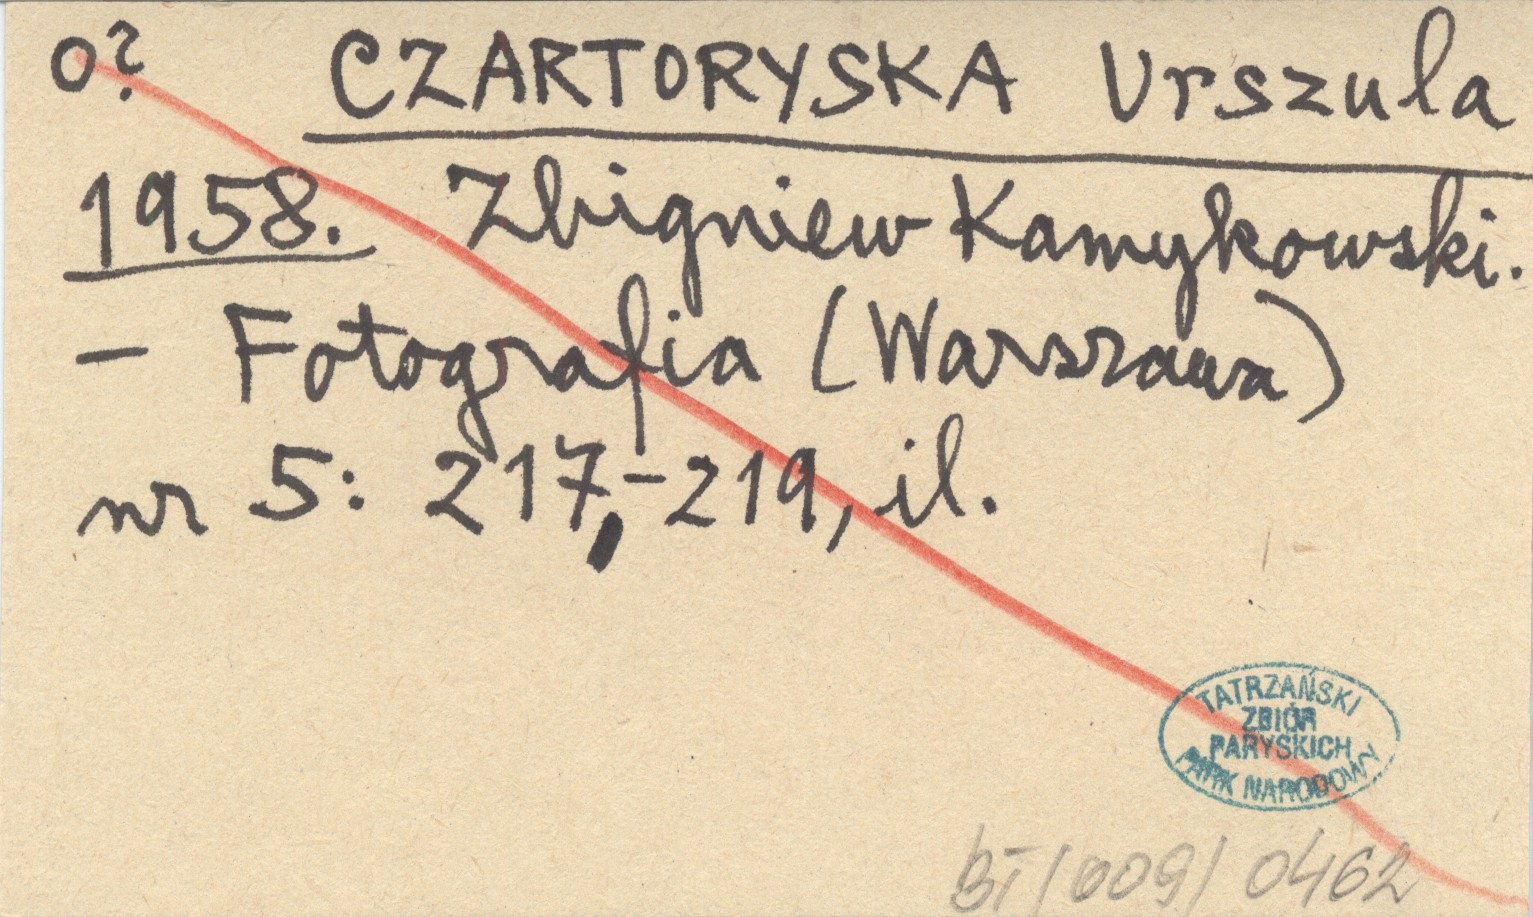 o? CZARTORYSKA Urszula
1958. Zbigniew Kamykowski.
– Fotografia (Warszawa)
nr 5: 217,–219, il.
TATRZAŃSKI
ZBIÓR
PARYSKICH
PARK NARODOWY
BT/009/0462